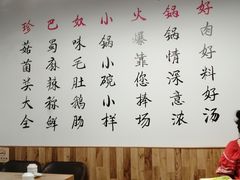 珍菇菌类大全
巴蜀麻辣称鲜
奴味毛肚鹅肠
小锅小碗小样
火爆靠您捧场
锅锅情深意浓
好肉好料好汤